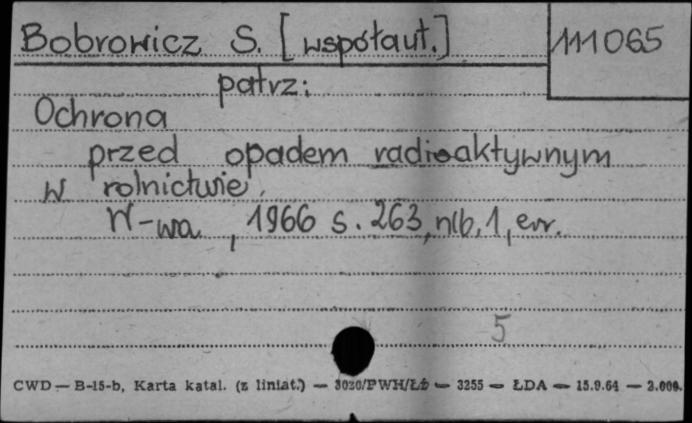 Bobrowicz S. [współaut.] 111065
patrz:
Ochrona
przed opadem radioaktywnym
w rolnictwie,
W-wa, 1966 s. 263, nlb, 1, err.
5
CWD — B-15-b, Karta katal. (z liniat.) — 3020/PWH/Łb — 3255 — ŁDA — 15.9.64 — 2.000.